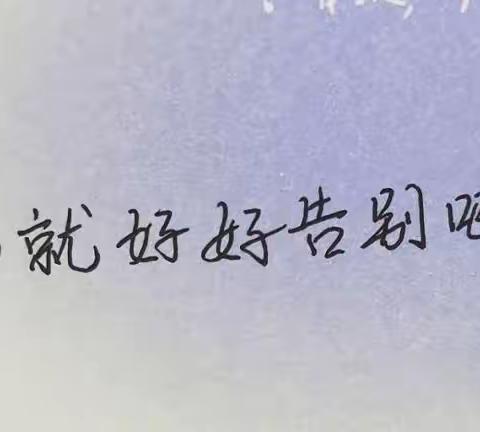 就好好告别